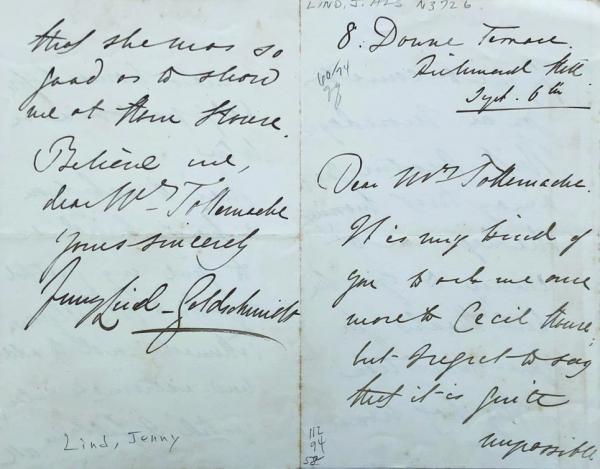 LIND, J. ALS N3726
8. Downe Terrace.
Richmond Hill
Sept. 6th
60/94
Dear Mrs Tollemache.
It is very kind of
you to ask me once
more to Cecil House,
but I regret to say
that it is quite
impossible
112
94
that she was so
good as to show
me at Ham House.
Believe me,
dear Mrs Tollemache
Yours sincerely
Jenny Lind-Goldschmidt
Lind, Jenny